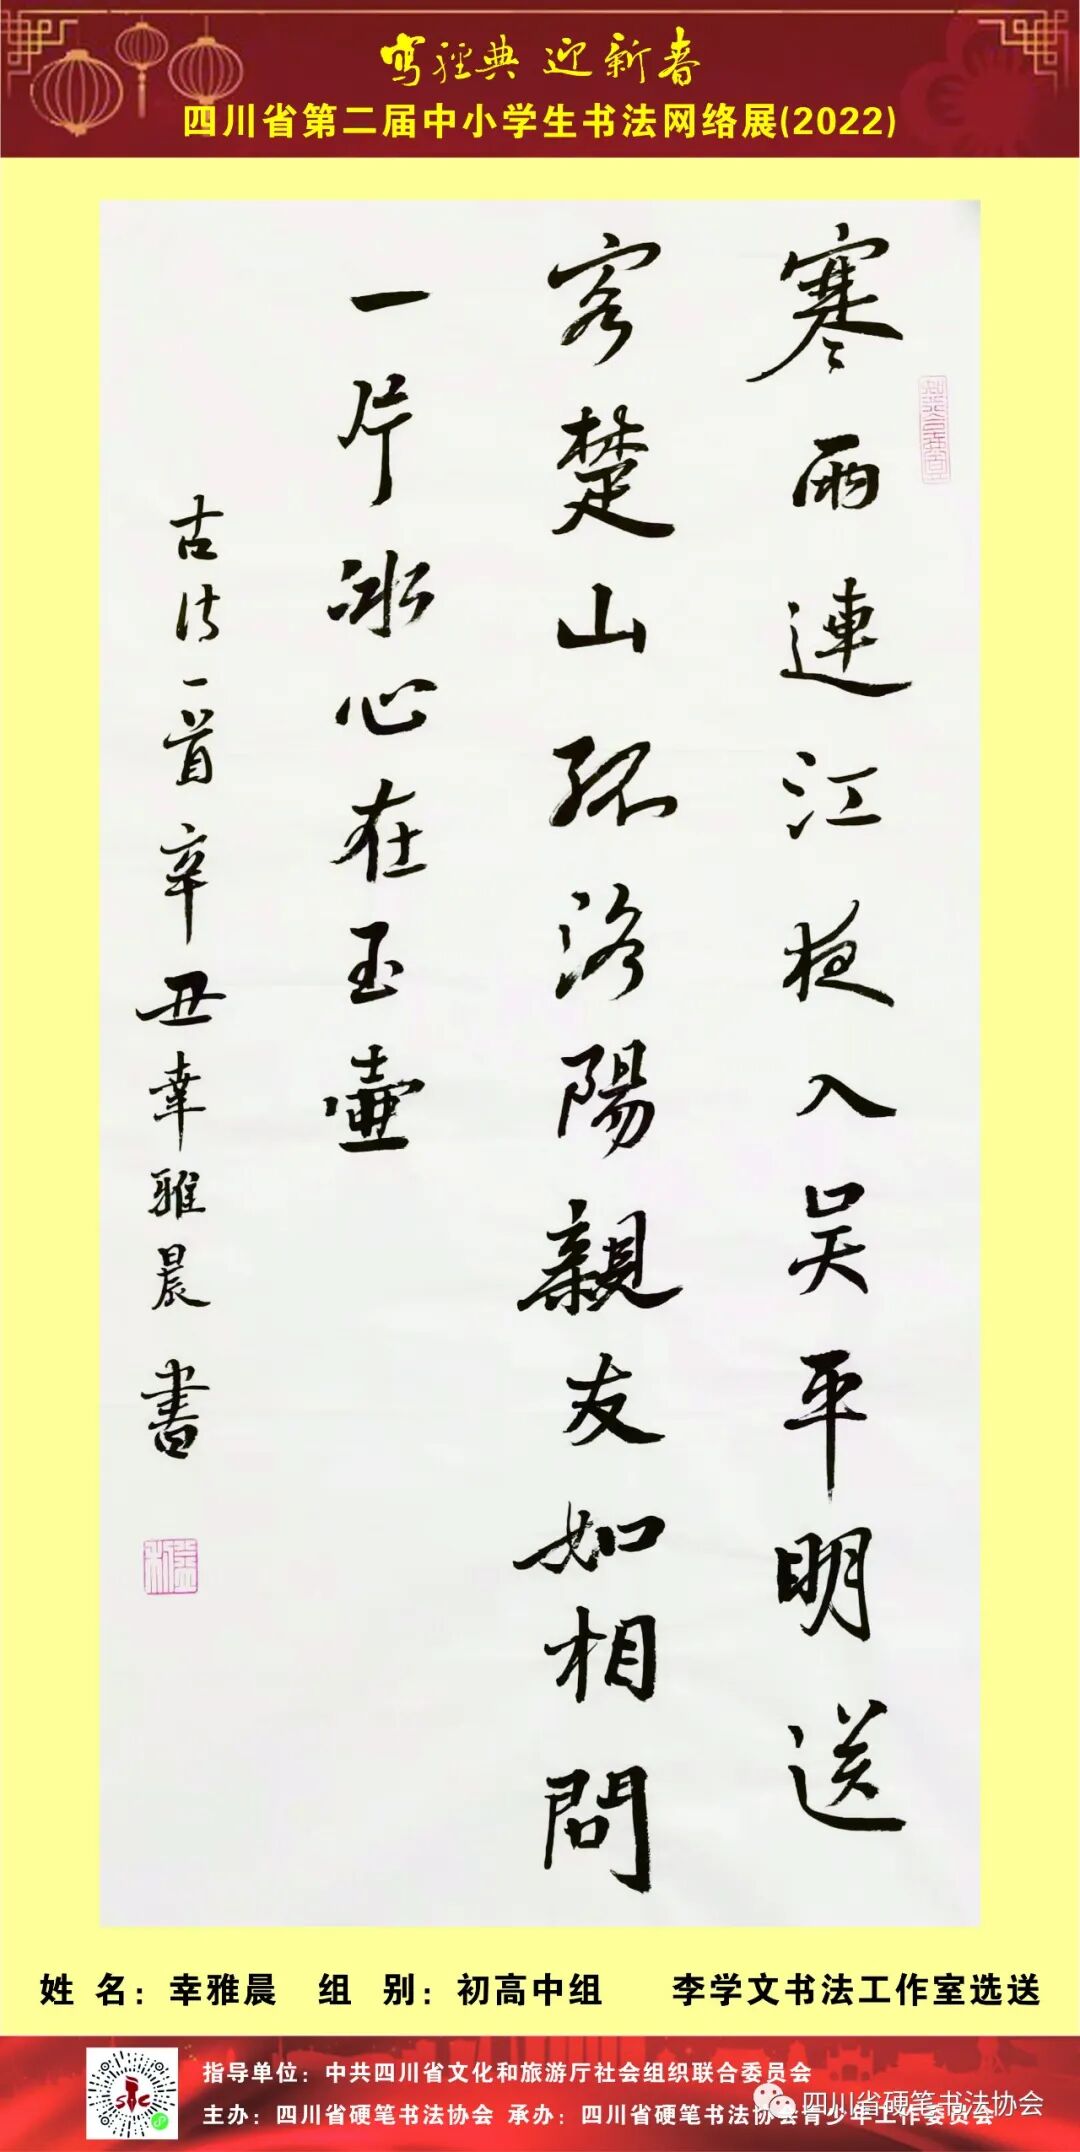 写经典 迎新春
四川省第二届中小学生书法网络展(2022)
寒雨連江夜入吴平明送
客楚山孤洛陽親友如相問
一片冰心在玉壺
古诗一首辛丑幸雅晨書
姓 名：幸雅晨 组 别：初高中组 李学文书法工作室选送
指导单位：中共四川省文化和旅游厅社会组织联合委员会
主办：四川省硬笔书法协会 承办：四川省硬笔书法协会青少年工作委员会
四川省硬笔书法协会